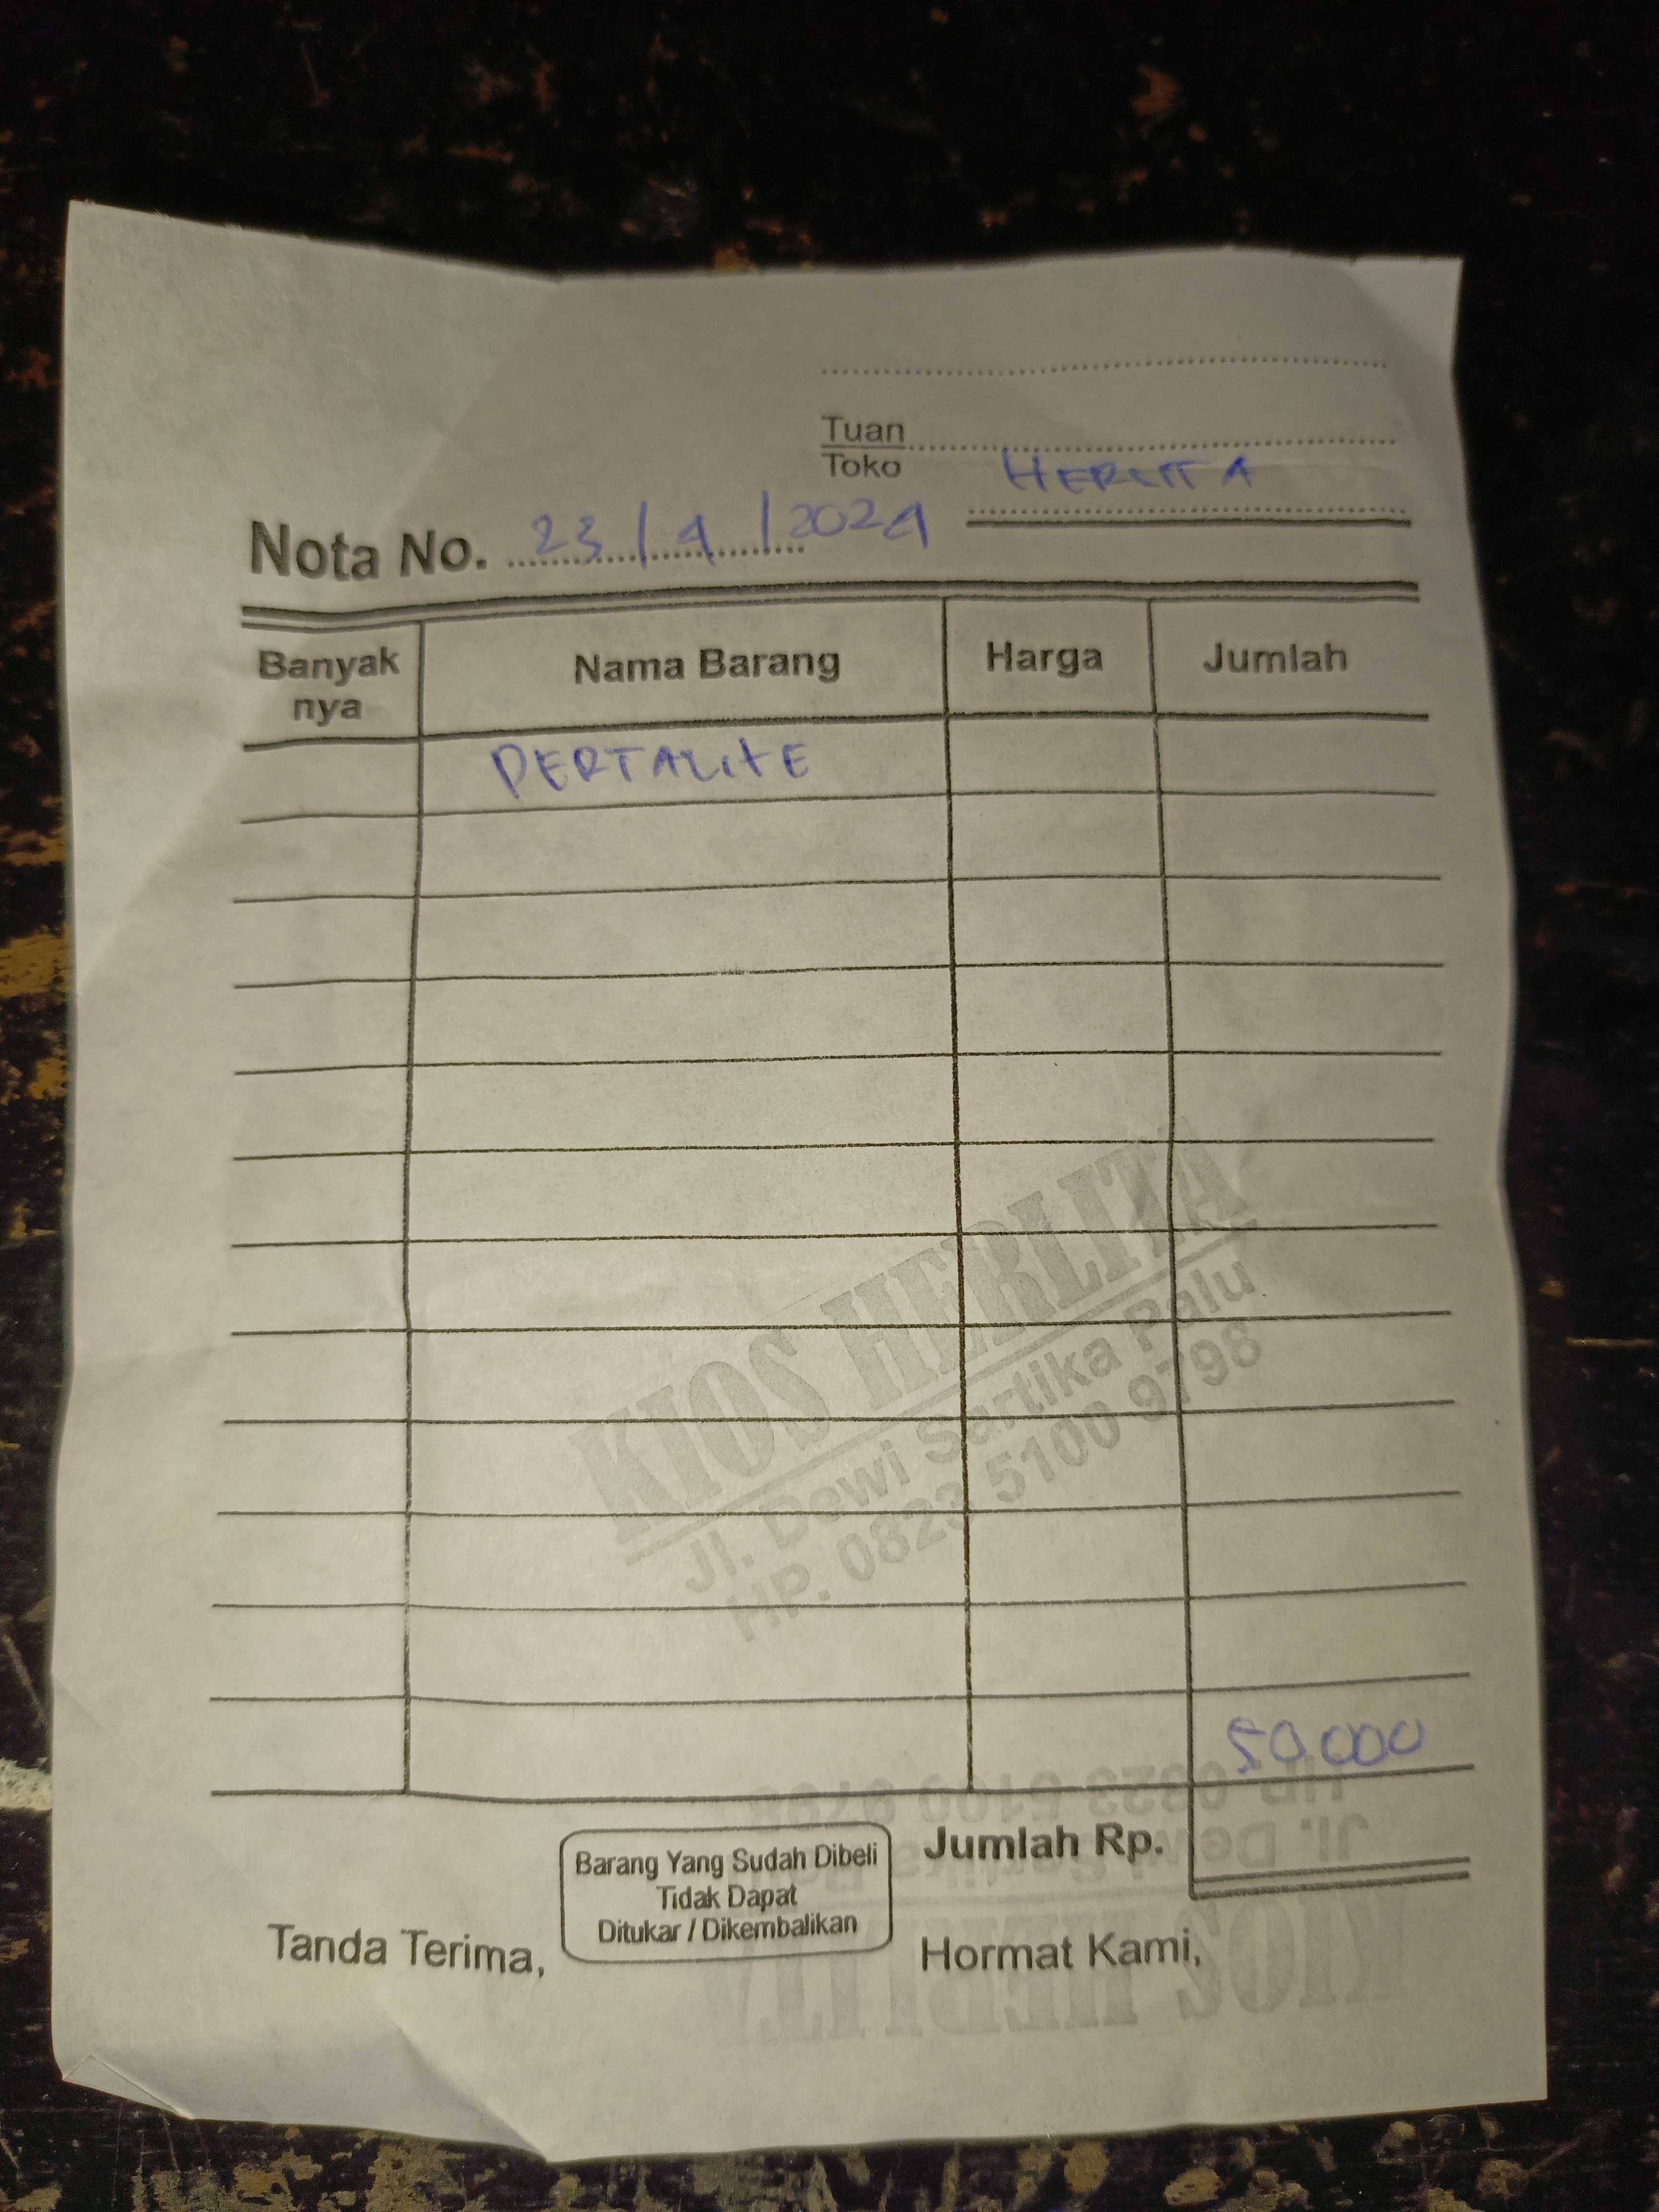 Tuan
Toko HERLITA
Nota No. 23/4/2024
Banyak nya Nama Barang Harga Jumlah
PERTALITE
KIOS HERLITA
Jl. Dewi Sartika Palu
HP. 0823 5100 9798
50.000
Jumlah Rp.
Barang Yang Sudah Dibeli
Tidak Dapat
Ditukar / Dikembalikan
Tanda Terima,
Hormat Kami,
HP. 0823 5100 9798
Jl. Dewi Sartika Palu
KIOS HERLITA